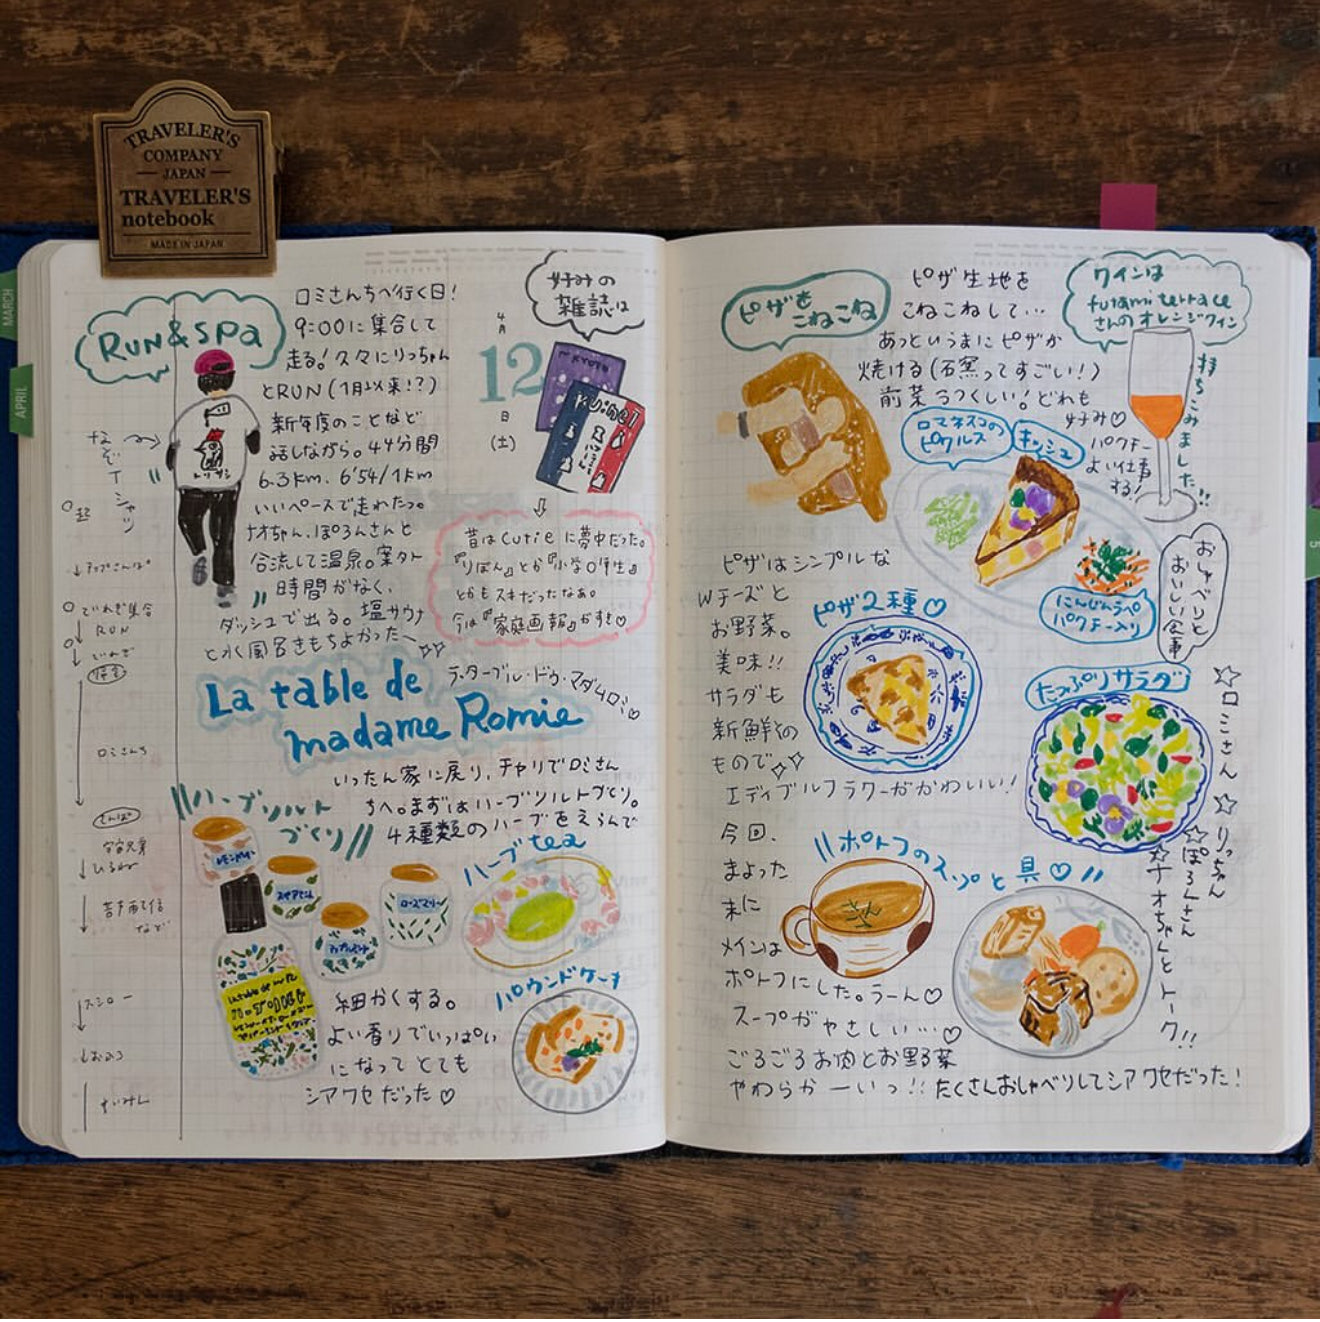 TRAVELER'S
COMPANY
JAPAN
TRAVELER'S
notebook
MADE IN JAPAN
MARCH
APRIL
RUN & SPa
ロミさんちへ行く日!
9:00に集合して
走る!久々にりっちゃん
とRUN(1月以来!?)
新年度のことなど
話しながら。44分間
6.3km. 6'54/1km
いいペースで走れたっ。
ナオちゃん、ぽろんさんと
合流して温泉。案外
時間がなく、
ダッシュで出る。塩サウナ
と水風呂きもちよかった〜
なぞTシャツ
トリサン
4
月
12
日
(土)
好みの
雑誌は
KYOTO
ku:nel
昔はcutieに夢中だった。
『りぼん』とか『小学○年生』
とかもスキだったなあ。
今は『家庭画報』がすき♡
起
でいれぎ集合
RUN
ロミさんち
さんぽ
ひるね
スシロー
おふろ
すいみん
La table de
madame Romie
ラ・ターブル・ドゥ・マダムロミ♡
いったん家に戻り、チャリでロミさん
ちへ。まずはハーブソルトづくり。
4種類のハーブをえらんで
ハーブソルト
づくり
ローズマリー
ハーブtea
パウンドケーキ
細かくする。
よい香りでいっぱい
になってとても
シアワセだった♡
ピザを
こねこね
ピザ生地を
こねこねして…
あっというまにピザが
焼ける(石窯ってすごい!)
前菜うつくしい!どれも
好み♡
パクチー
よい仕事
する!
ワインは
futami terrace
さんのオレンジワイン
持ちこみました!!
ロマネスコの
ピクルス
キッシュ
にんじんラペ
パクチー入り
おしゃべりと
おいしい食事
ピザはシンプルな
Wチーズと
お野菜。
美味!!
サラダも
新鮮との
もので
エディブルフラワーがかわいい!
ピザ2種♡
たっぷりサラダ
☆ロミさん ☆りっちゃん
☆ぽろんさん
☆ナオちゃんとトーク!!
今回、
まよった
末に
メインは
ポトフにした。うーん♡
スープがやさしい…♡
ごろごろお肉とお野菜
やわらかーいっ!!たくさんおしゃべりしてシアワセだった!
ポトフのスープと具♡
5